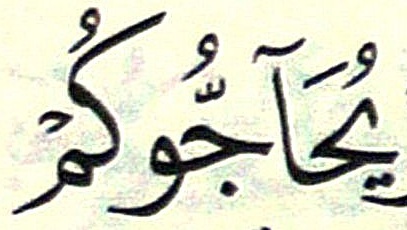 يُحَآجُّوكُمْ